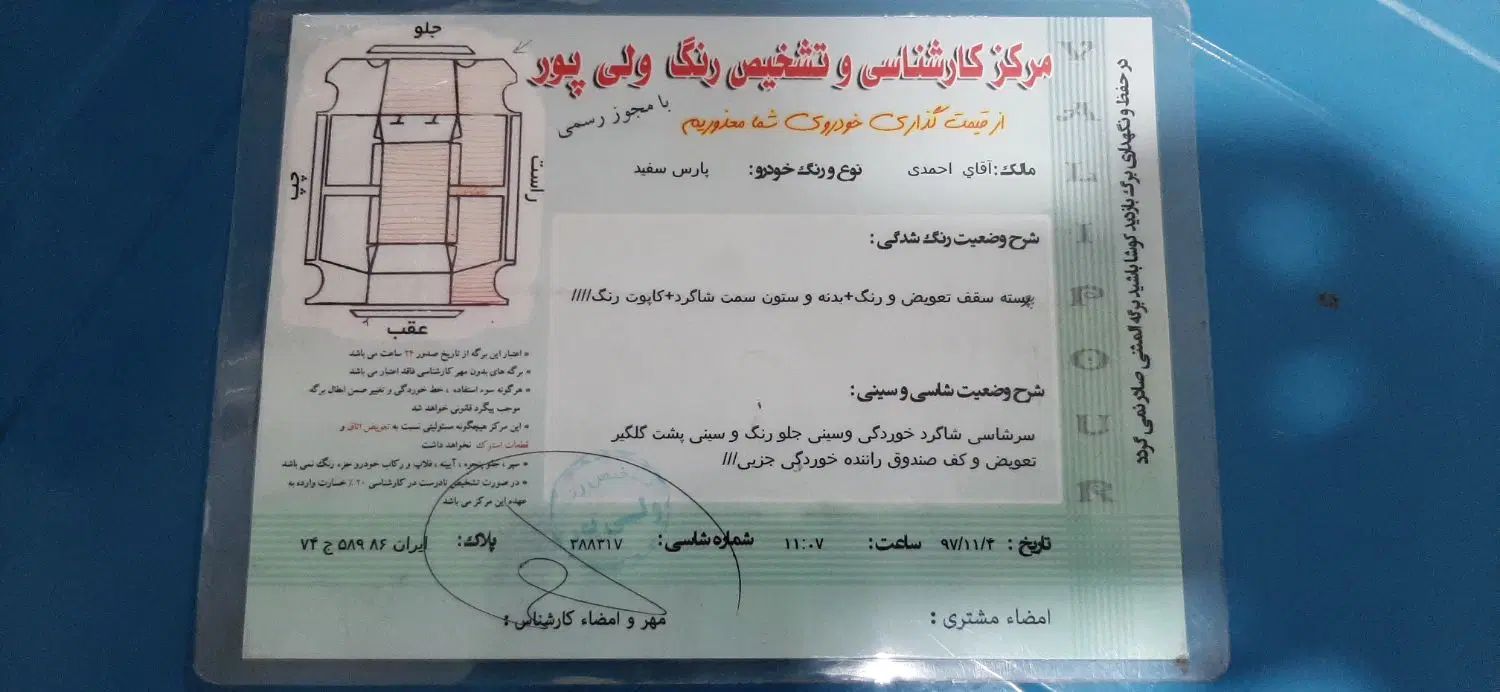 مرکز کارشناسی و تشخیص رنگ ولی پور
با مجوز رسمی
از قیمت گذاری خودروی شما معذوریم
مالک: آقای احمدی نوع و رنگ خودرو: پارس سفید
شرح وضعیت رنگ شدگی:
پوسته سقف تعویض و رنگ+بدنه و ستون سمت شاگرد+کاپوت رنگ////
شرح وضعیت شاسی و سینی:
سرشاسی شاگرد خوردگی وسینی جلو رنگ و سینی پشت گلگیر
تعویض و کف صندوق راننده خوردگی جزیی///
تاریخ: ۹۷/۱۱/۴ ساعت: ۱۱:۰۷ شماره شاسی: ۳۸۸۳۱۷ پلاک: ایران ۸۶ ۵۸۹ ج ۷۴
امضاء مشتری: مهر و امضاء کارشناس:
جلو
راست
چپ
عقب
* اعتبار این برگه از تاریخ صدور ۲۴ ساعت می باشد
* برگه های بدون مهر کارشناسی فاقد اعتبار می باشد
* هرگونه سوء استفاده ، خط خوردگی و تغییر ضمن ابطال برگه
موجب پیگرد قانونی خواهد شد
* این مرکز هیچگونه مسئولیتی نسبت به تعویض اتاق و
قطعات استوک نخواهد داشت
* سپر ، جلو پنجره ، آیینه ، فلاپ و رکاب خودرو جزء رنگ نمی باشد
* در صورت تشخیص نادرست در کارشناسی ۲۰٪ خسارت وارده به
عهده این مرکز می باشد
در حفظ و نگهداری برگ بازدید کوشا باشید برگه المثنی صادر نمی گردد
VALIPOUR
تشخیص رنگ
ولی پور